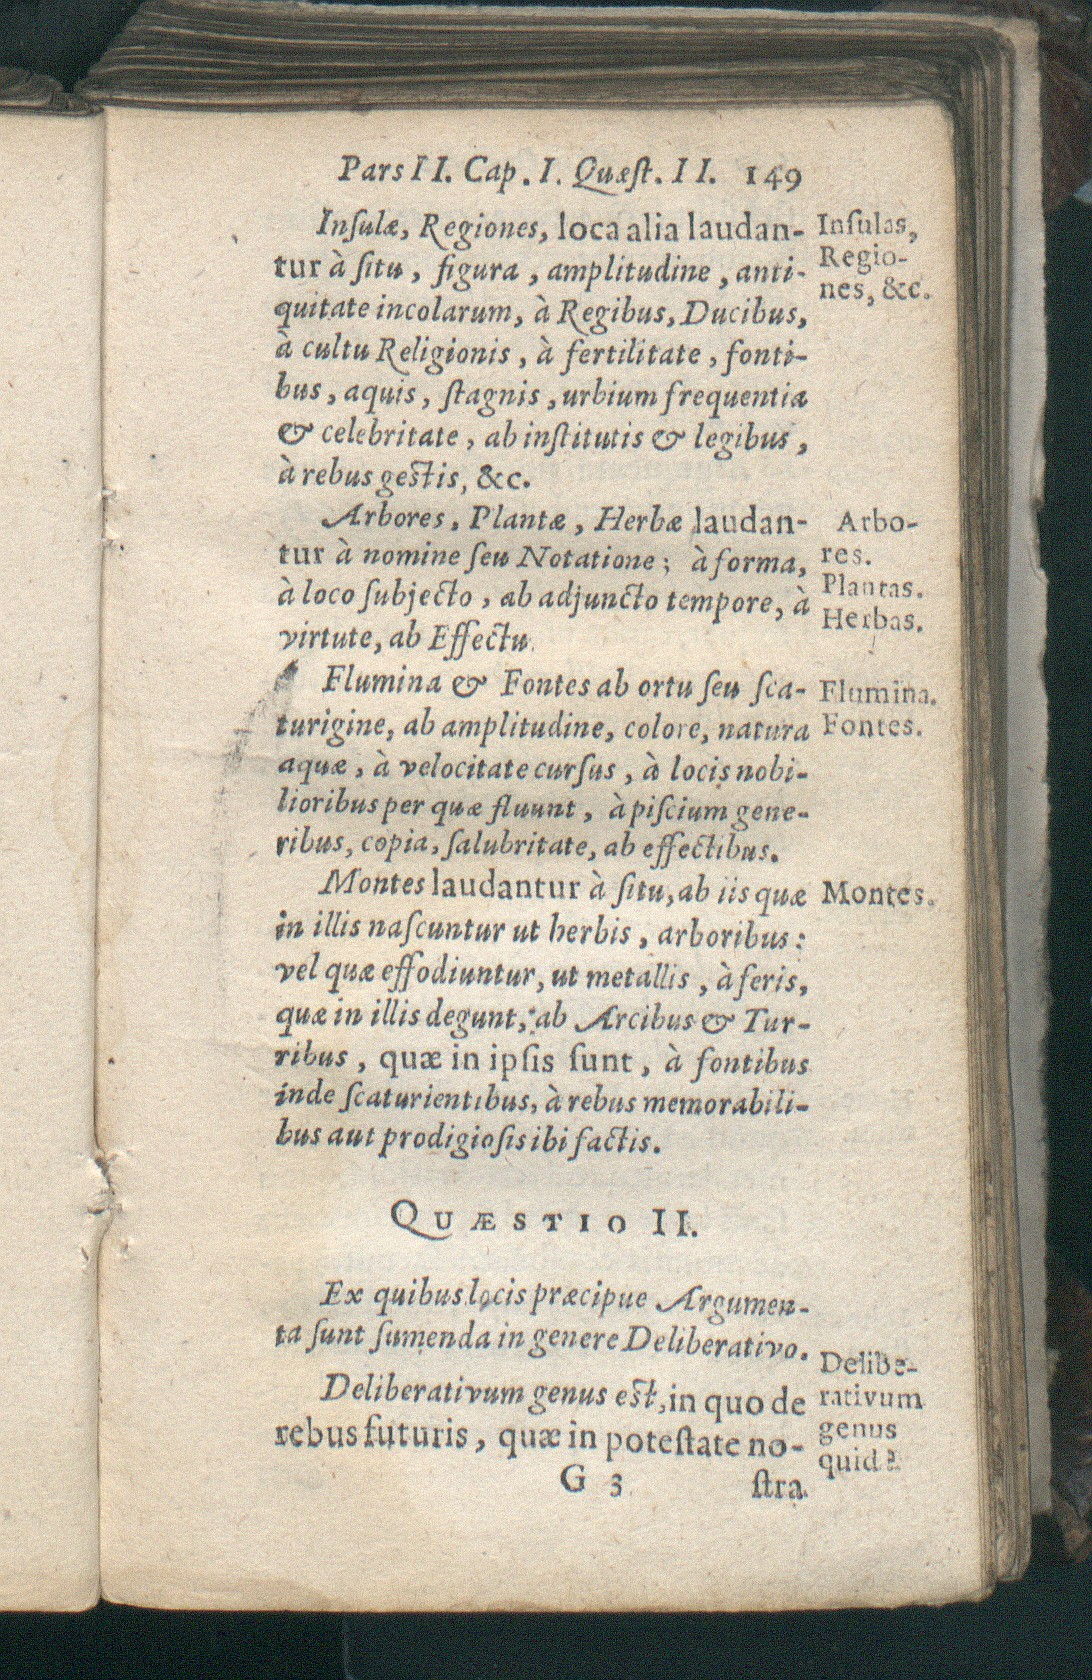 Pars II. Cap. I. Quæſt. II. 149
Inſulæ, Regiones, loca alia laudan-
tur à ſitu, figura, amplitudine, anti-
quitate incolarum, à Regibus, Ducibus,
à cultu Religionis, à fertilitate, fonti-
bus, aquis, ſtagnis, urbium frequentia
& celebritate, ab inſtitutis & legibus,
à rebus geſtis, &c.
Arbores, Plantæ, Herbæ laudan-
tur à nomine ſeu Notatione; à forma,
à loco ſubjecto, ab adjuncto tempore, à
virtute, ab Effectu.
Flumina & Fontes ab ortu ſeu ſca-
turigine, ab amplitudine, colore, natura
aquæ, à velocitate curſus, à locis nobi-
lioribus per quæ fluunt, à piſcium gene-
ribus, copia, ſalubritate, ab effectibus.
Montes laudantur à ſitu, ab iis quæ
in illis naſcuntur ut herbis, arboribus:
vel quæ effodiuntur, ut metallis, à feris,
quæ in illis degunt, ab Arcibus & Tur-
ribus, quæ in ipſis ſunt, à fontibus
inde ſcaturientibus, à rebus memorabili-
bus aut prodigioſis ibi factis.
QUÆSTIO II.
Ex quibus locis præcipue Argumen-
ta ſunt ſumenda in genere Deliberativo.
Deliberativum genus eſt, in quo de
rebus futuris, quæ in poteſtate no-
G 3
ſtra
Inſulas,
Regio-
nes, &c.
Arbo-
res.
Plantas.
Herbas.
Flumina.
Fontes.
Montes.
Delibe-
rativum
genus
quid